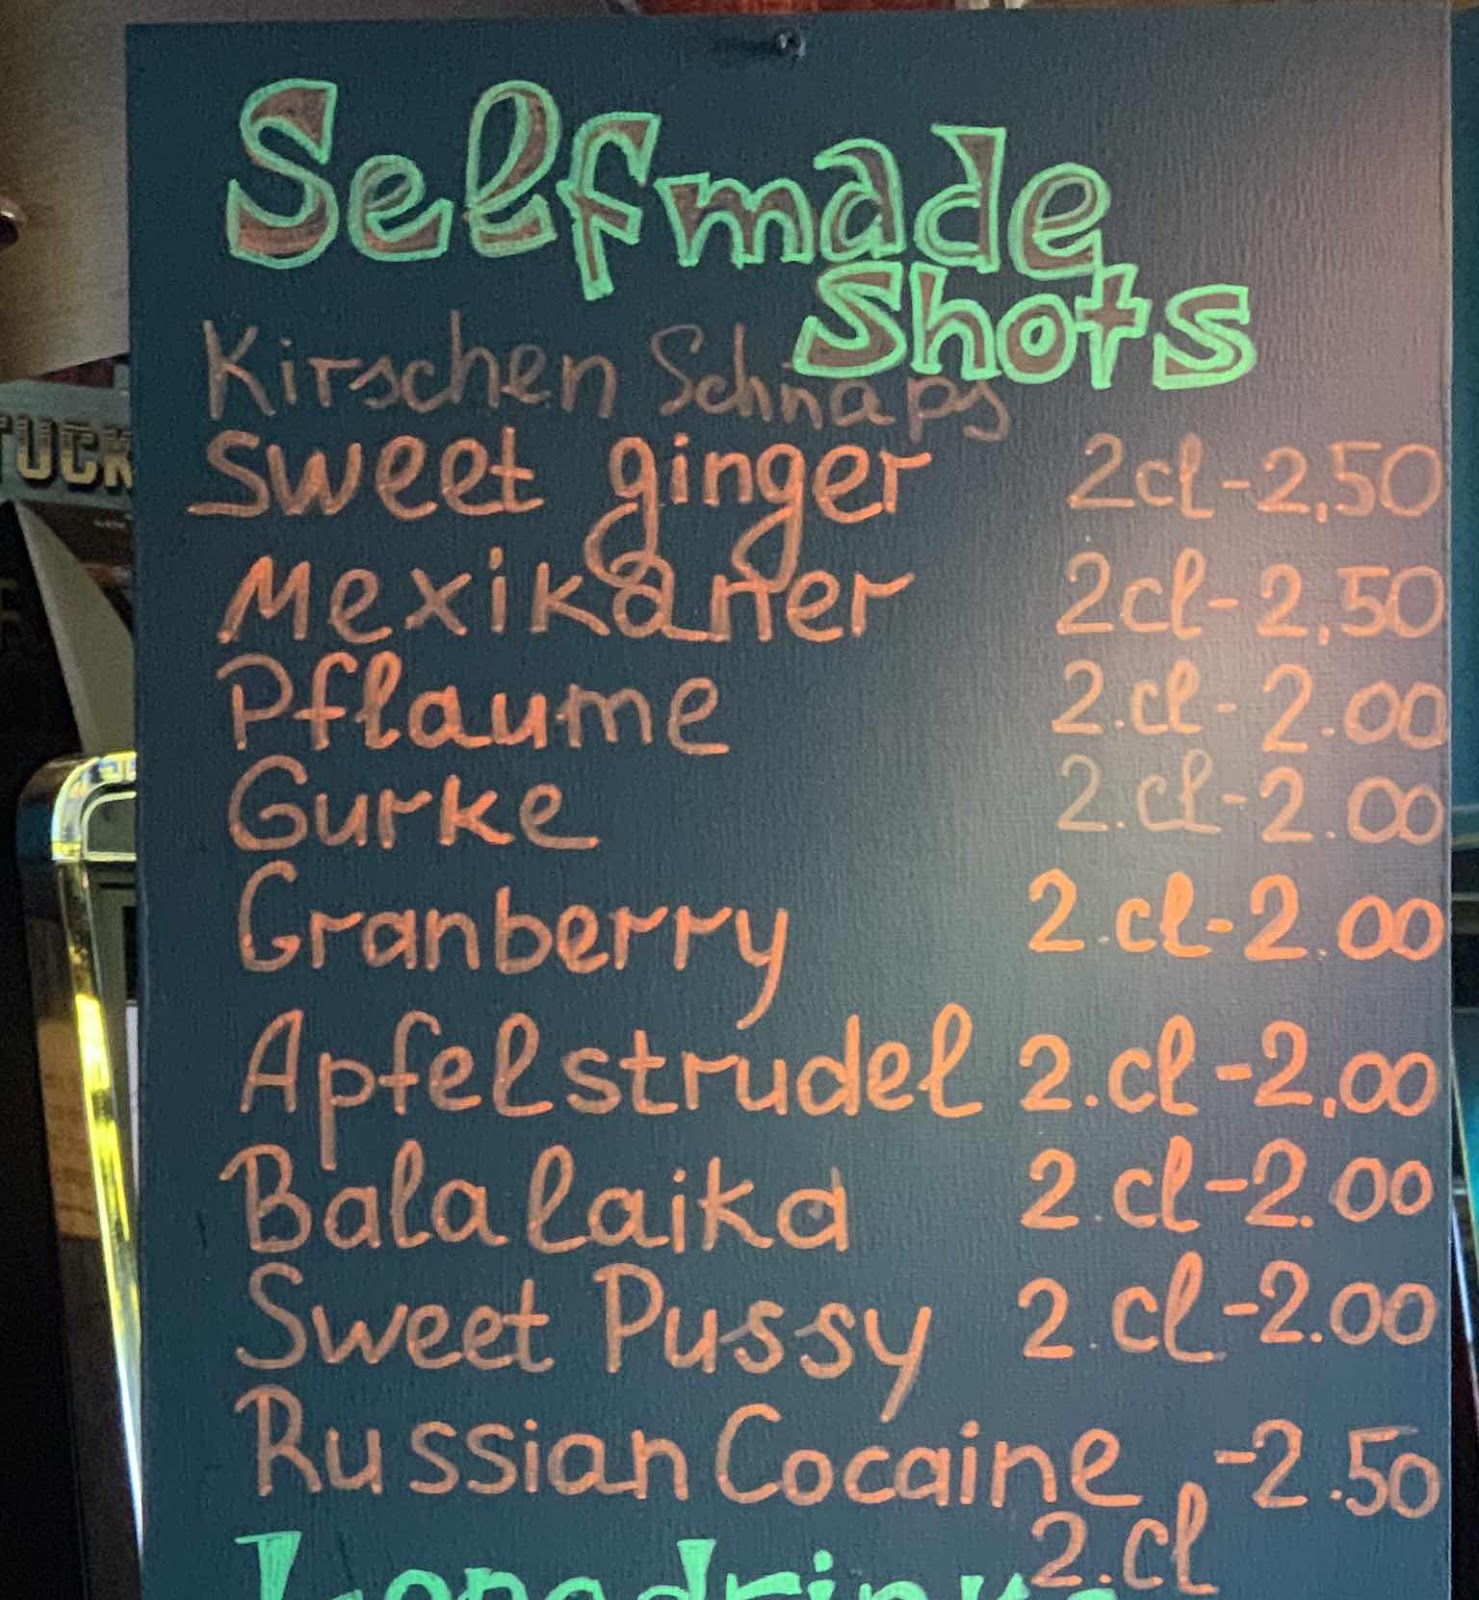 Selfmade
Shots
Kirschen Schnaps
Sweet ginger 2cl-2,50
Mexikaner 2cl-2,50
Pflaume 2.cl-2.00
Gurke 2.cl-2.00
Granberry 2.cl-2.00
Apfelstrudel 2.cl-2,00
Balalaika 2.cl-2.00
Sweet Pussy 2.cl-2.00
Russian Cocaine -2.50
2.cl